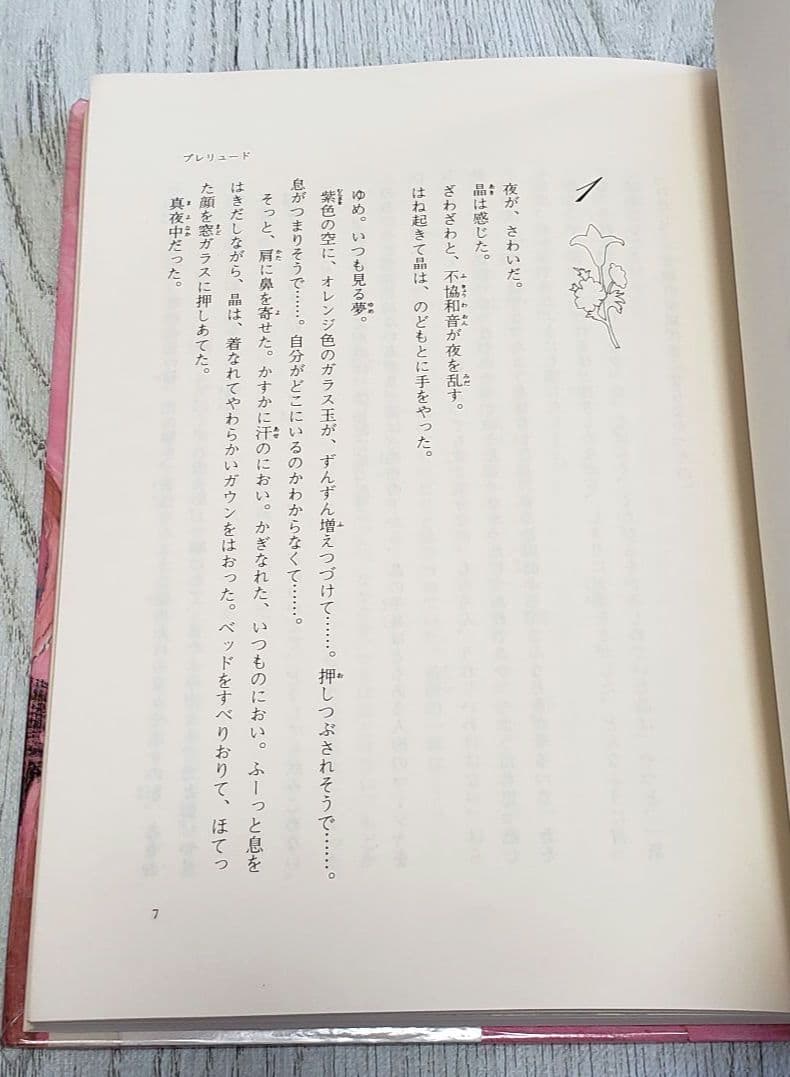 プレリュード
1
夜が、さわいだ。
晶は感じた。
ざわざわと、不協和音が夜を乱す。
はね起きて晶は、のどもとに手をやった。
ゆめ。いつも見る夢。
紫色の空に、オレンジ色のガラス玉が、ずんずん増えつづけて……。押しつぶされそうで……。
息がつまりそうで……。自分がどこにいるのかわからなくて……。
そっと、肩に鼻を寄せた。かすかに汗のにおい。かぎなれた、いつものにおい。ふーっと息を
はきだしながら、晶は、着なれてやわらかいガウンをはおった。ベッドをすべりおりて、ほてっ
た顔を窓ガラスに押しあてた。
真夜中だった。
7